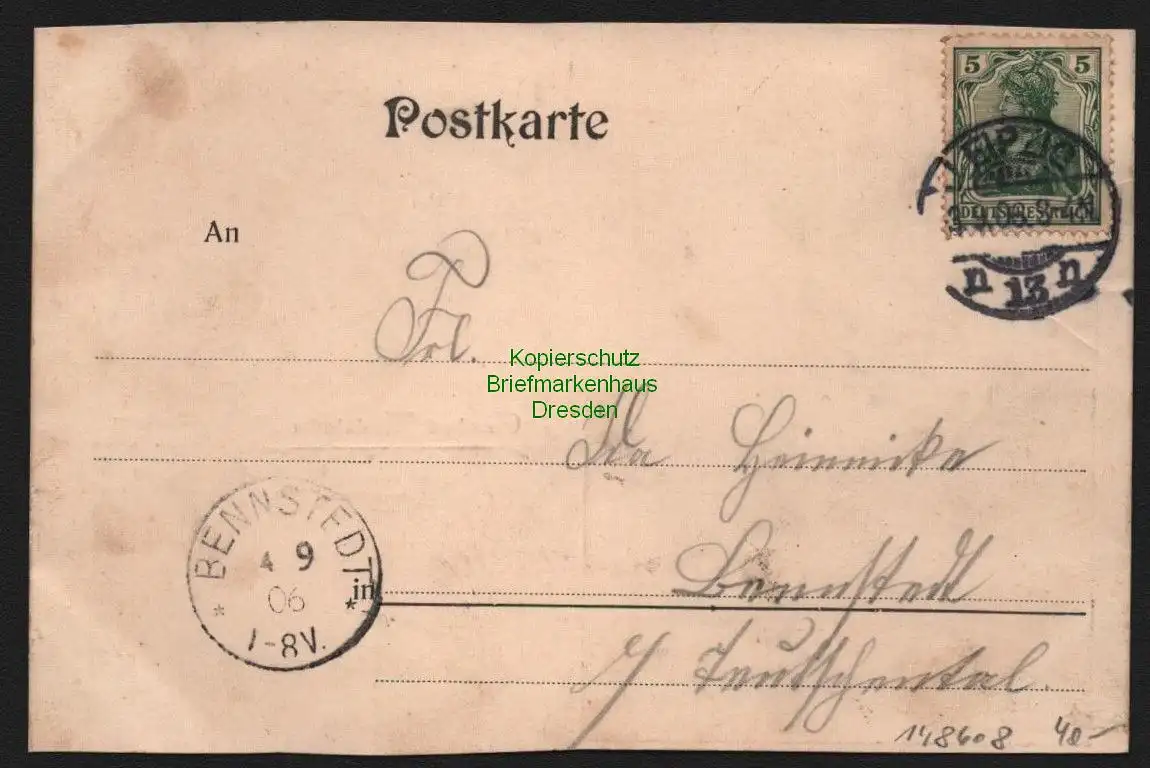 Postkarte
5 5
DEUTSCHES REICH
LEIPZIG
n 13 n
An
Frl.
Kopierschutz
Briefmarkenhaus
Dresden
Ida Heinnicke
BENNSTEDT
4 9
06
7-8V.
in Bennstedt
b/ Teutschental.
148608 40-